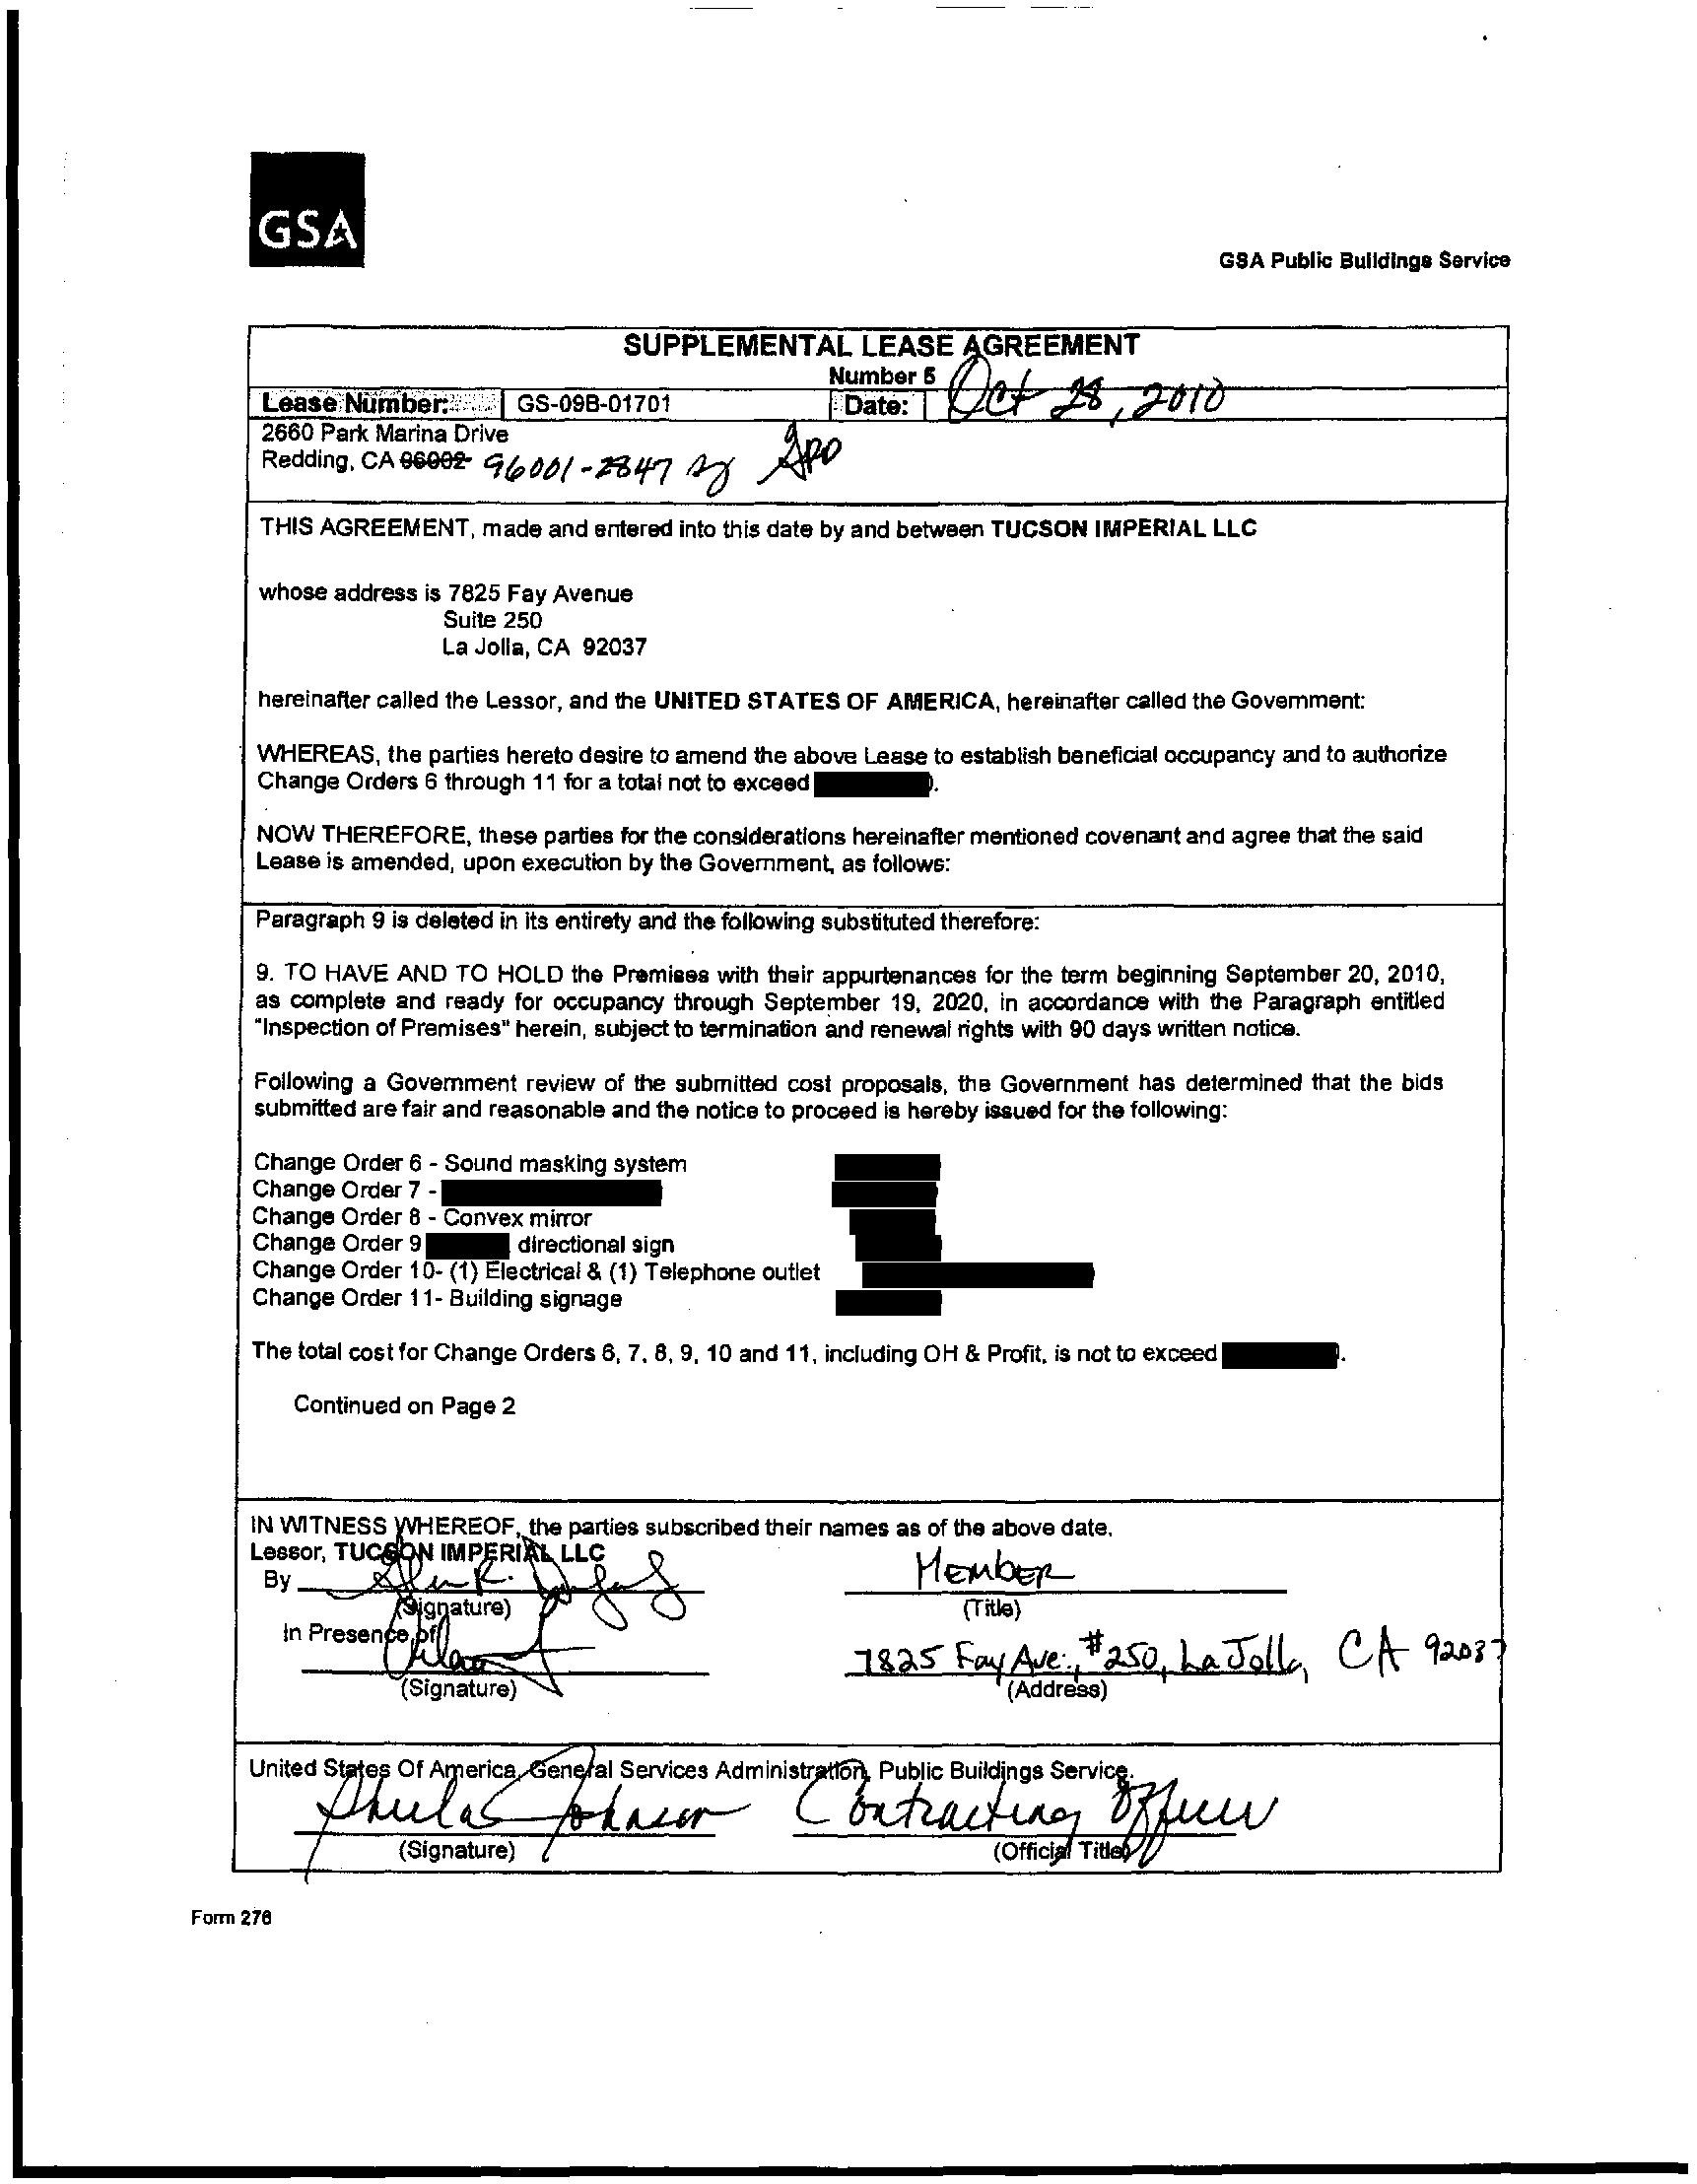 GSA
GSA Public Buildings Service
SUPPLEMENTAL LEASE AGREEMENT
Number 5
Lease Number: GS-09B-01701 Date: Oct 28, 2010
2660 Park Marina Drive
Redding, CA 96002 96001-2847
THIS AGREEMENT, made and entered into this date by and between TUCSON IMPERIAL LLC
whose address is 7825 Fay Avenue
Suite 250
La Jolla, CA 92037
hereinafter called the Lessor, and the UNITED STATES OF AMERICA, hereinafter called the Government:
WHEREAS, the parties hereto desire to amend the above Lease to establish beneficial occupancy and to authorize
Change Orders 6 through 11 for a total not to exceed .
NOW THEREFORE, these parties for the considerations hereinafter mentioned covenant and agree that the said
Lease is amended, upon execution by the Government, as follows:
Paragraph 9 is deleted in its entirety and the following substituted therefore:
9. TO HAVE AND TO HOLD the Premises with their appurtenances for the term beginning September 20, 2010,
as complete and ready for occupancy through September 19, 2020, in accordance with the Paragraph entitled
"Inspection of Premises" herein, subject to termination and renewal rights with 90 days written notice.
Following a Government review of the submitted cost proposals, the Government has determined that the bids
submitted are fair and reasonable and the notice to proceed is hereby issued for the following:
Change Order 6 - Sound masking system
Change Order 7 -
Change Order 8 - Convex mirror
Change Order 9 directional sign
Change Order 10- (1) Electrical & (1) Telephone outlet
Change Order 11- Building signage
The total cost for Change Orders 6, 7, 8, 9, 10 and 11, including OH & Profit, is not to exceed .
Continued on Page 2
IN WITNESS WHEREOF, the parties subscribed their names as of the above date.
Lessor, TUCSON IMPERIAL LLC
By Member
(Signature) (Title)
In Presence of
7825 Fay Ave., #250, La Jolla, CA 92037
(Signature) (Address)
United States Of America, General Services Administration, Public Buildings Service.
Sheila Johnson Contracting Officer
(Signature) (Official Title)
Form 276